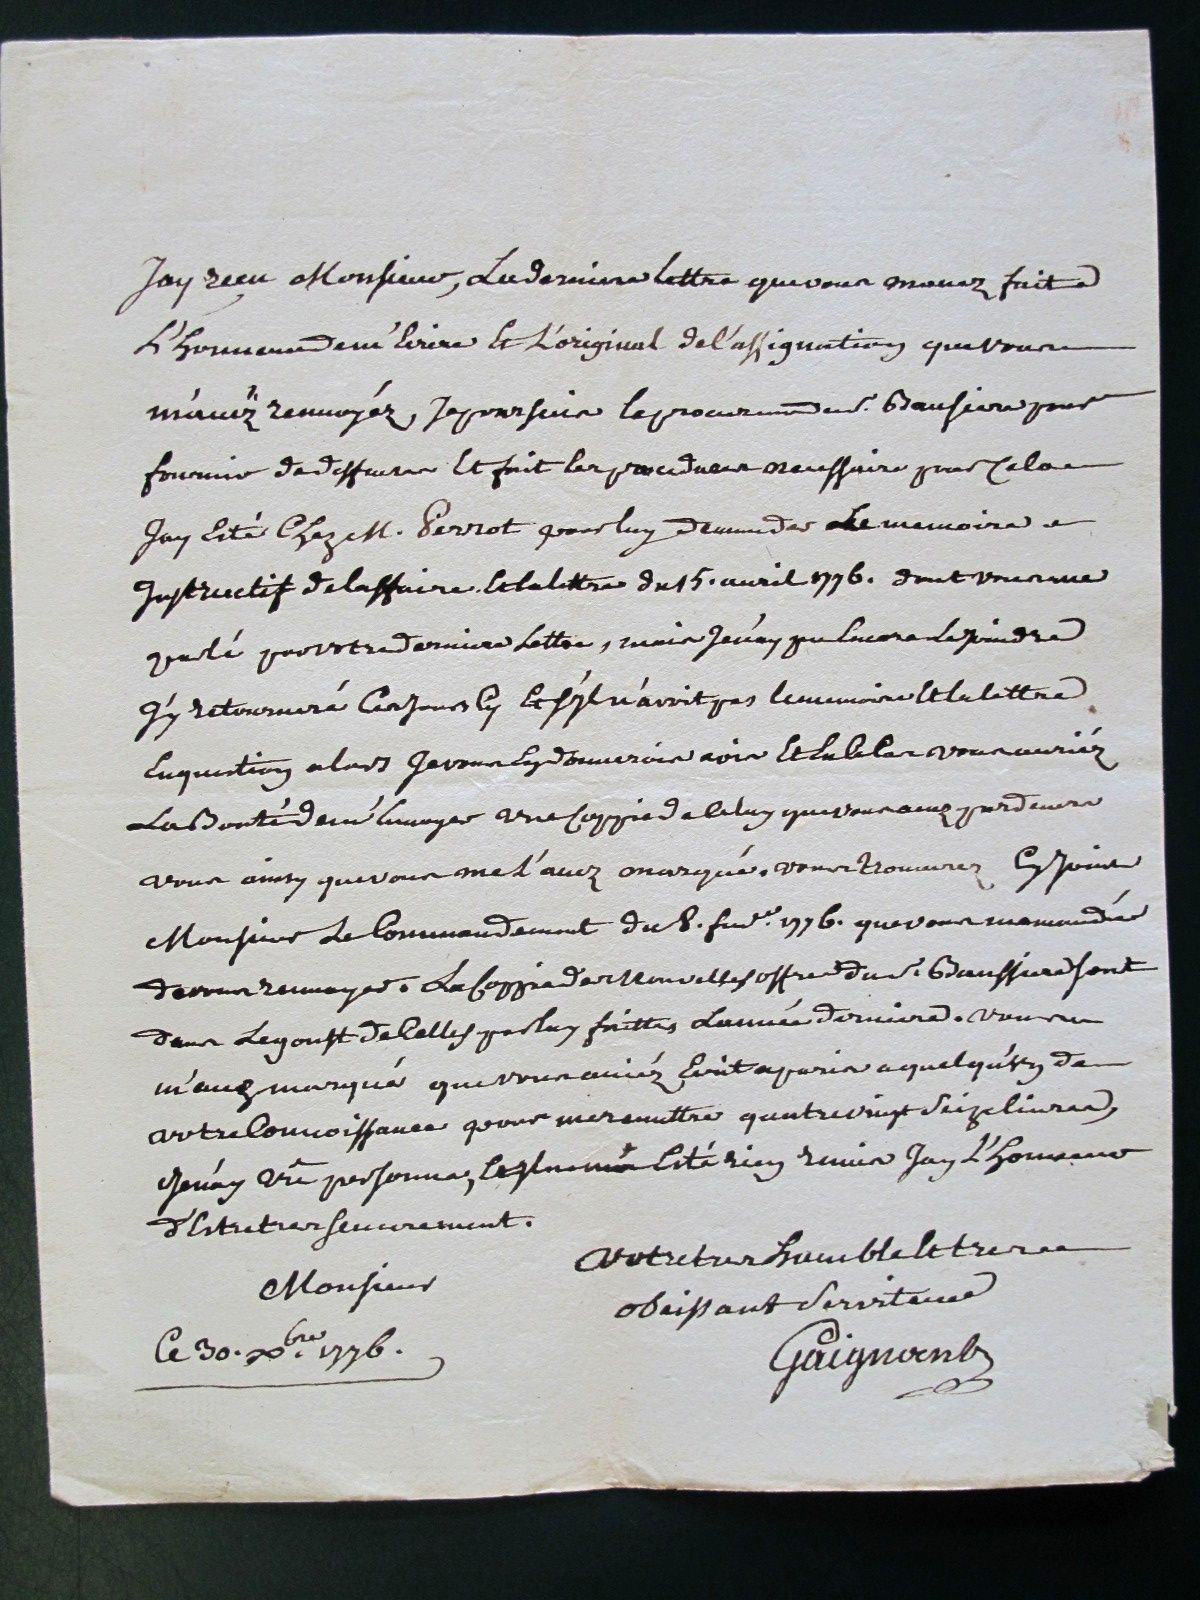 Jay reçu Monsieur, La derniere lettre que vous mavez fait
L'honneur de m'Ecrire Et L'original de l'assignation que vous
m'avéz renvoyéz, Je poursuis le procureur du s. Baussiere pour
fournir de deffenses Et fait les procedures necessaire pour Cela
Jay Esté Chez M. Perrot pour luy demander Le memoire
Instructif de laffaire Et la lettre du 15. avril 1776. dont vous me
parlé par votre derniere Lettre, mais Je n'ay pu Encore Le Joindre
J'y retourneré Ces Jours Cy Et s'yl n'avoit pas le memoire Et la lettre
En question alors Je vous En donnerois avis Et En Ce Cas vous auriéz
La Bonté de m'Envoyer Une Coppie de Celuy que vous avez pardevers
vous ainsy que vous me l'avez marqué. vous trouverez Cy Joint
Monsieur Le Commandement du 8. fev.er 1776. que vous me mandés
de vous renvoyer. La Coppie des Nouvelles offres du s. Baussiere sont
dans Le goust de Celles par luy faittes L'année derniere. vous
m'avez marqué que vous aviéz Ecrit a paris a quelqu'Un de
votre Connoissance pour me remettre quatre vingt seize livres,
Je n'ay vû personne, Esté rien remis Jay L'honneur
d'Estre tres sincerement.
Monsieur
votre tres humble Et tres
obeissant serviteur
Ce 30. xbre. 1776.
Gaignant